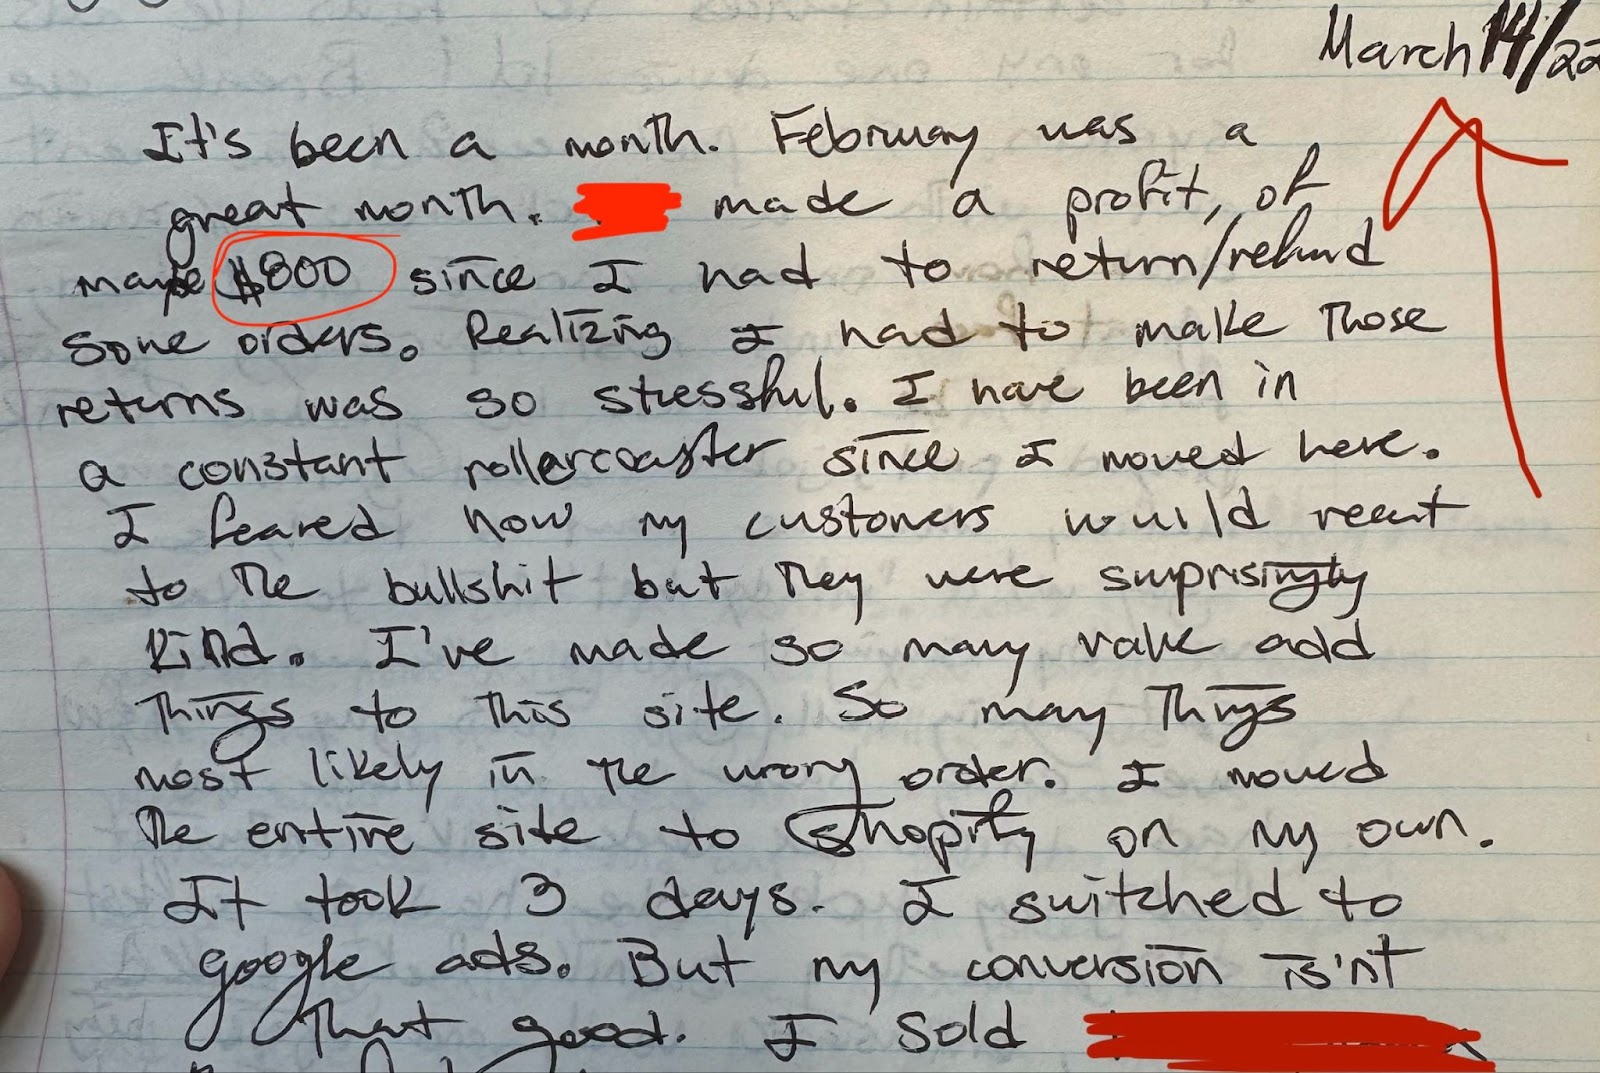 March 14/22
It's been a month. February was a
great month. made a profit, of
maybe $800 since I had to return/refund
some orders. Realizing I had to make those
returns was so stressful. I have been in
a constant rollercoaster since I moved here.
I feared how my customers would react
to the bullshit but they were surprisingly
kind. I've made so many value add
things to this site. So many things
most likely in the wrong order. I moved
the entire site to Shopify on my own.
It took 3 days. I switched to
google ads. But my conversion is'nt
that good. I sold